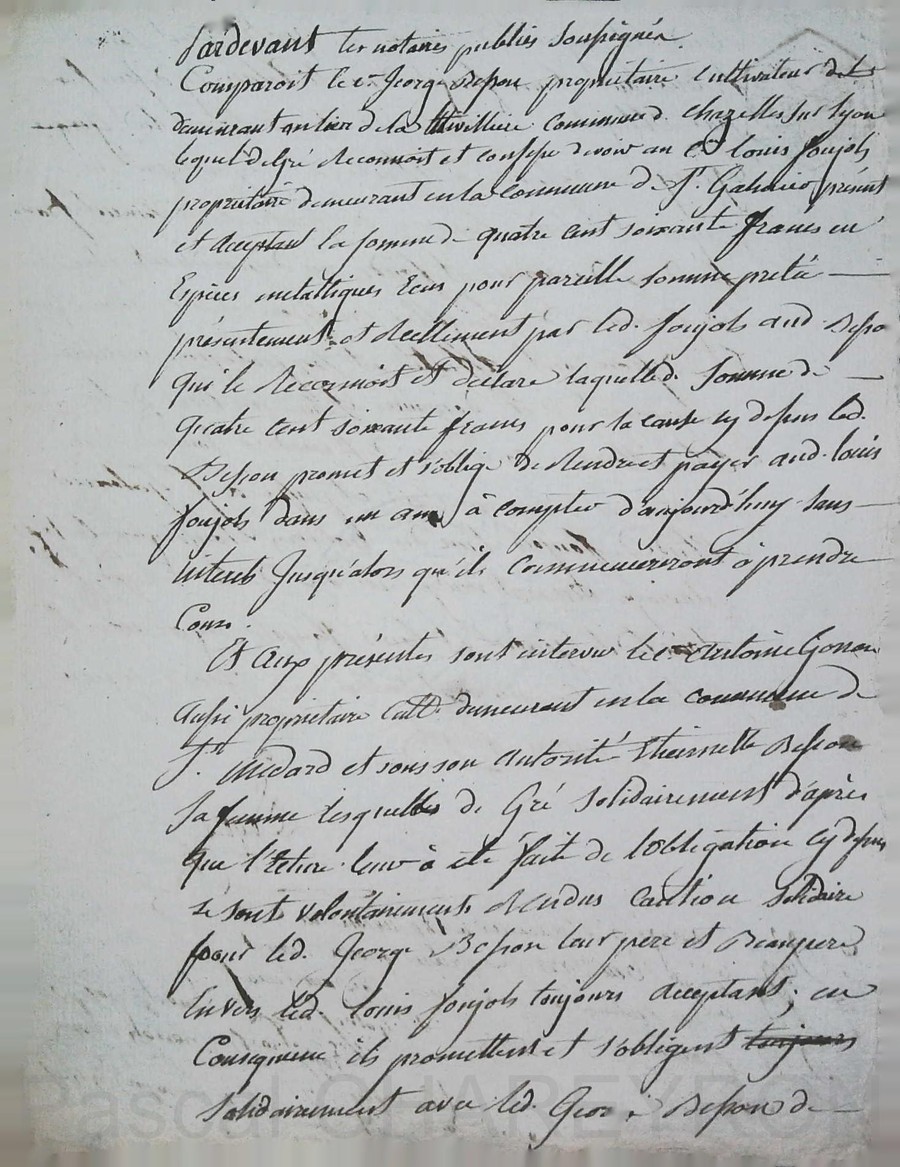 Pardevant les notaires publics soussignés
Comparoit le Cn. George Besson propriétaire cultivateur
demeurant au lieu de la Thivilliere commune d. Chazelles sur lyon
lequel de Gré Reconnoit et confesse devoir au Cn. louis foujols
proprietaire demeurant en la commune de St. Galmier, présent
et acceptant la somme de quatre cent soixante francs en
Espèces metalliques Ecus pour pareille somme preté
présentement et Reellement par led. foujols aud. Besso
qui le Reconnoit et déclare laquelle d. somme de
quatre cent soixante francs pour la cause cy dessus led.
Besson promet et s'oblige de Rendre et payer aud. louis
foujols dans un an à compter d'aujourd'huy sans
interets Jusqu'alors qu'ils commenceront à prendre
Cours.
Et aux présentes sont intervenu le Cn. Antoine Gonon
aussi propriétaire cult. demeurant en la commune de
St. Medard et sous son autorité Etiennette Besson
sa femme lesquelles de Gré solidairement d'après
que lecture leur à été faite de l'obligation cy dessus
se sont volontairement Rendus caution solidaire
pour led. George Besson leur pere et Beaupere
Envers led. louis foujols toujours acceptant, en
Consequence ils promettent et s'obligent toujours
solidairement avec led. Geor Besson de
Pascal CHAREYRON